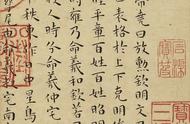 帝堯曰放勳欽明文
表格于上下克明
平章百姓百姓昭明
時雍乃命羲和欽若
時分命羲仲宅
秩東作日中星鳥
尾申命羲叔宅南